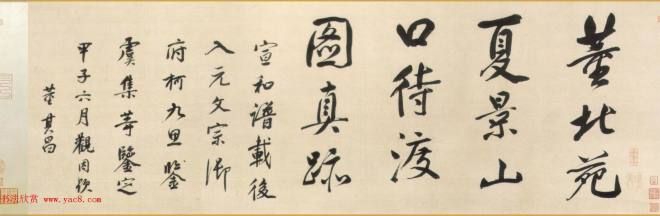 董北苑
夏景山
口待渡
圖真跡
宣和譜載後
入元文宗御
府柯九思鑒
虞集等鑒定
甲子六月觀因題
董其昌
书法欣赏
www.yac8.com